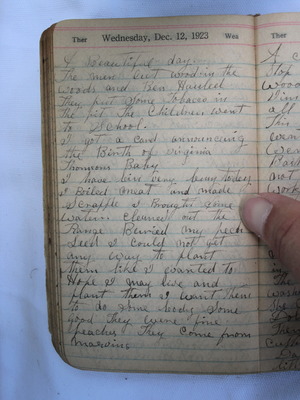 Ther Wednesday, Dec. 12, 1923 Wea Ther
A Beautiful day.
The men cut wood in the
woods and Ben Hauled
They put Some Tobacco in
the pit The Children went
to School.
I got a card announcing
the Birth of Virginia
Thompsons Baby
I have bin very busy to day
I Boiled meat and made
Scrapple I Brought Some
Water. Cleaned out the
Range Burried my peach
Seed I Could not get
any way to plant
them like I wanted to
Hope I may live and
plant them I want them
to do Some body Some
good They were fine
peaches They Come from